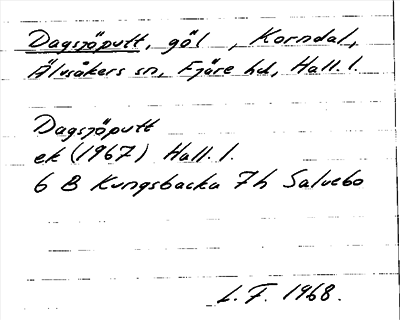 Dagsjöputt, göl , Korndal,
Älvsåkers sn, Fjäre hd, Hall. l.
Dagsjöputt
ek (1967) Hall. l.
6 B Kungsbacka 7h Salvebo
L. F. 1968.